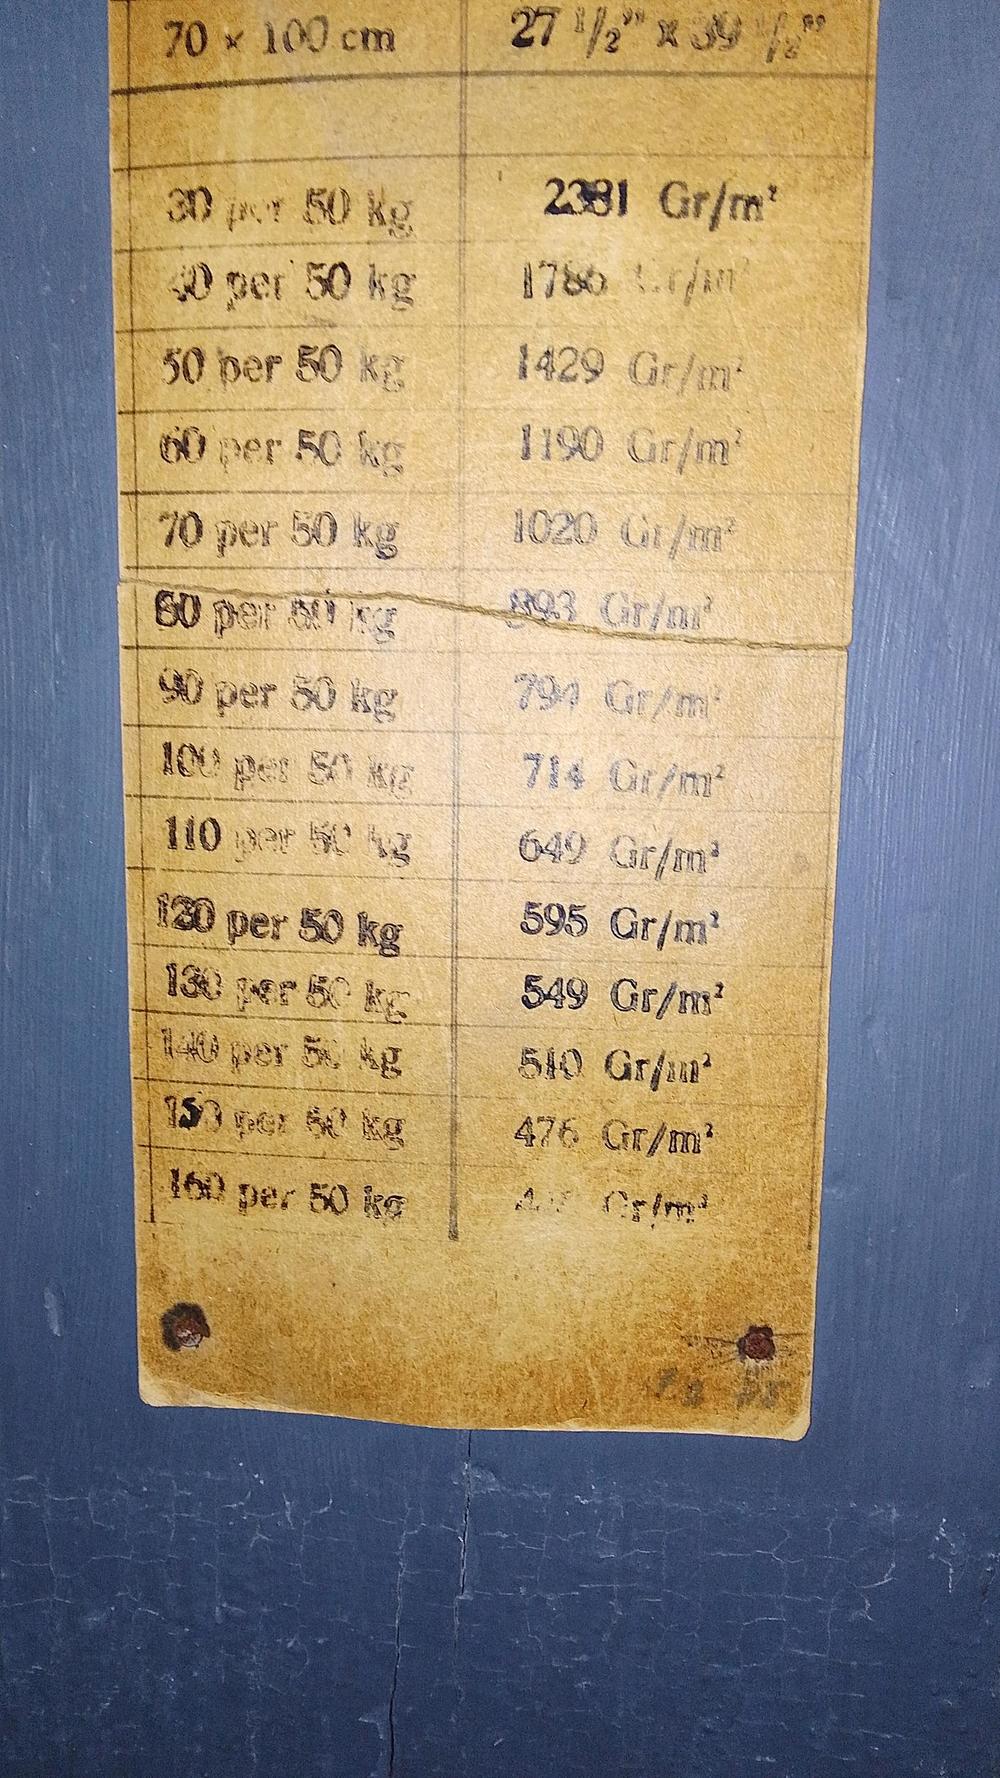 70 × 100 cm 27 1/2" x 39 1/2"
30 per 50 kg 2381 Gr/m²
40 per 50 kg 1786 Gr/m²
50 per 50 kg 1429 Gr/m²
60 per 50 kg 1190 Gr/m²
70 per 50 kg 1020 Gr/m²
80 per 50 kg 893 Gr/m²
90 per 50 kg 794 Gr/m²
100 per 50 kg 714 Gr/m²
110 per 50 kg 649 Gr/m²
120 per 50 kg 595 Gr/m²
130 per 50 kg 549 Gr/m²
140 per 50 kg 510 Gr/m²
150 per 50 kg 476 Gr/m²
160 per 50 kg Gr/m²